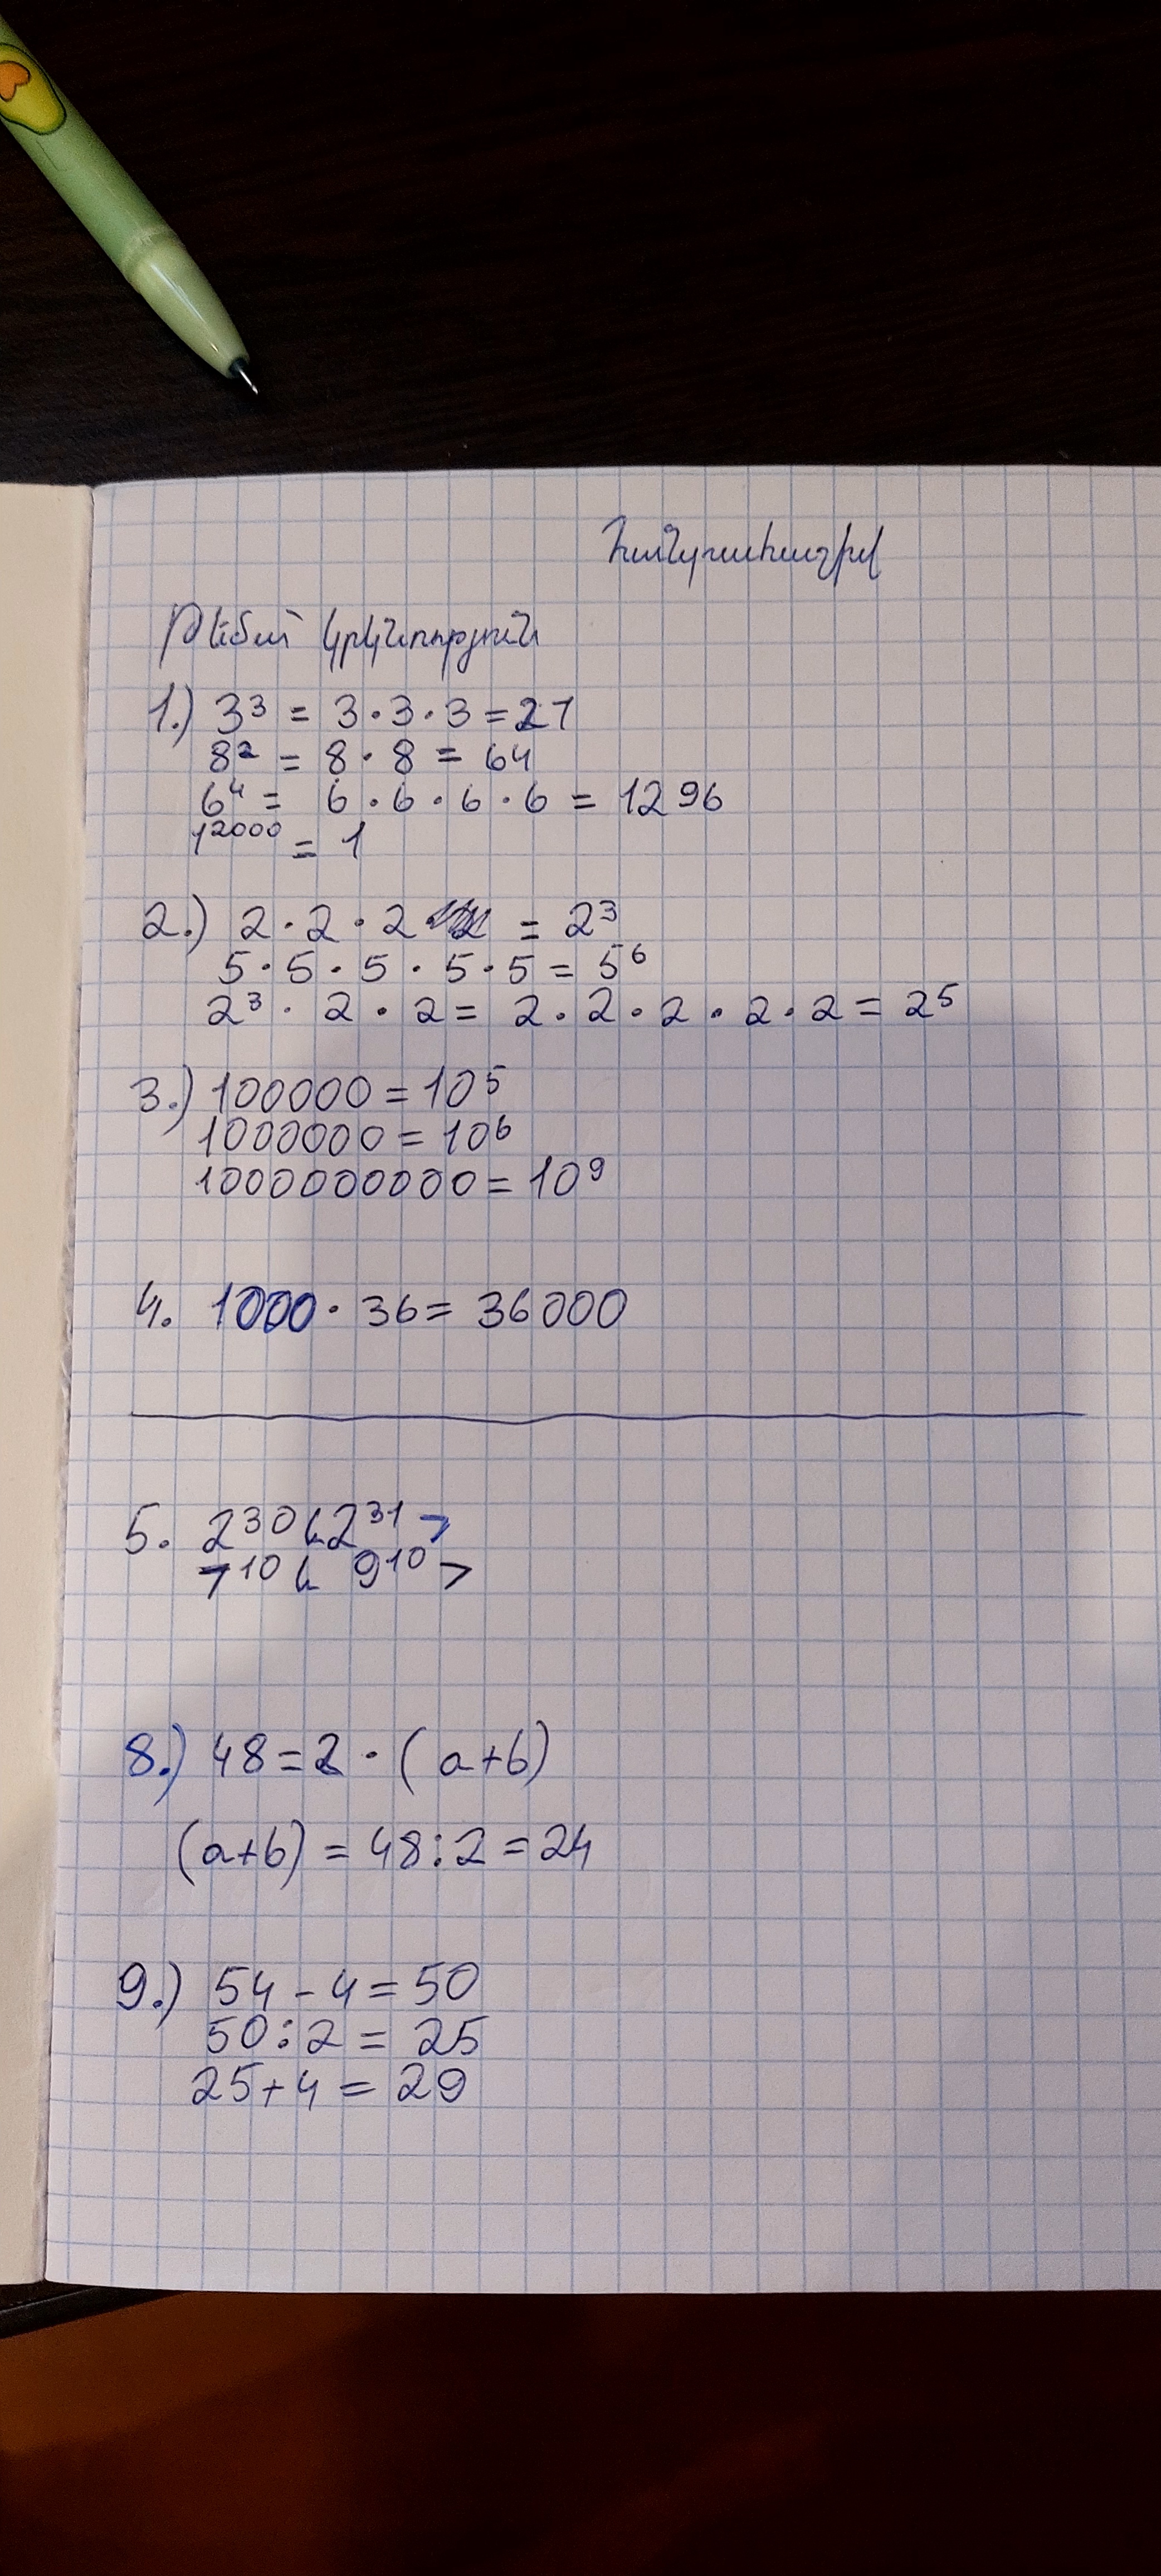 Հանրահաշիվ
Թեմայի կրկնություն
1.) 3³ = 3·3·3=27
8² = 8·8 = 64
6⁴ = 6·6·6·6 = 1296
1²⁰⁰⁰ = 1
2.) 2·2·2 = 2³
5·5·5·5·5 = 5⁶
2³·2·2 = 2·2·2·2·2 = 2⁵
3.) 100000 = 10⁵
1000000 = 10⁶
1000000000 = 10⁹
4. 1000·36 = 36000
5. 2³⁰ և 2³¹ >
7¹⁰ և 9¹⁰ >
8.) 48=2·(a+b)
(a+b) = 48:2 = 24
9.) 54-4=50
50:2 = 25
25+4 = 29